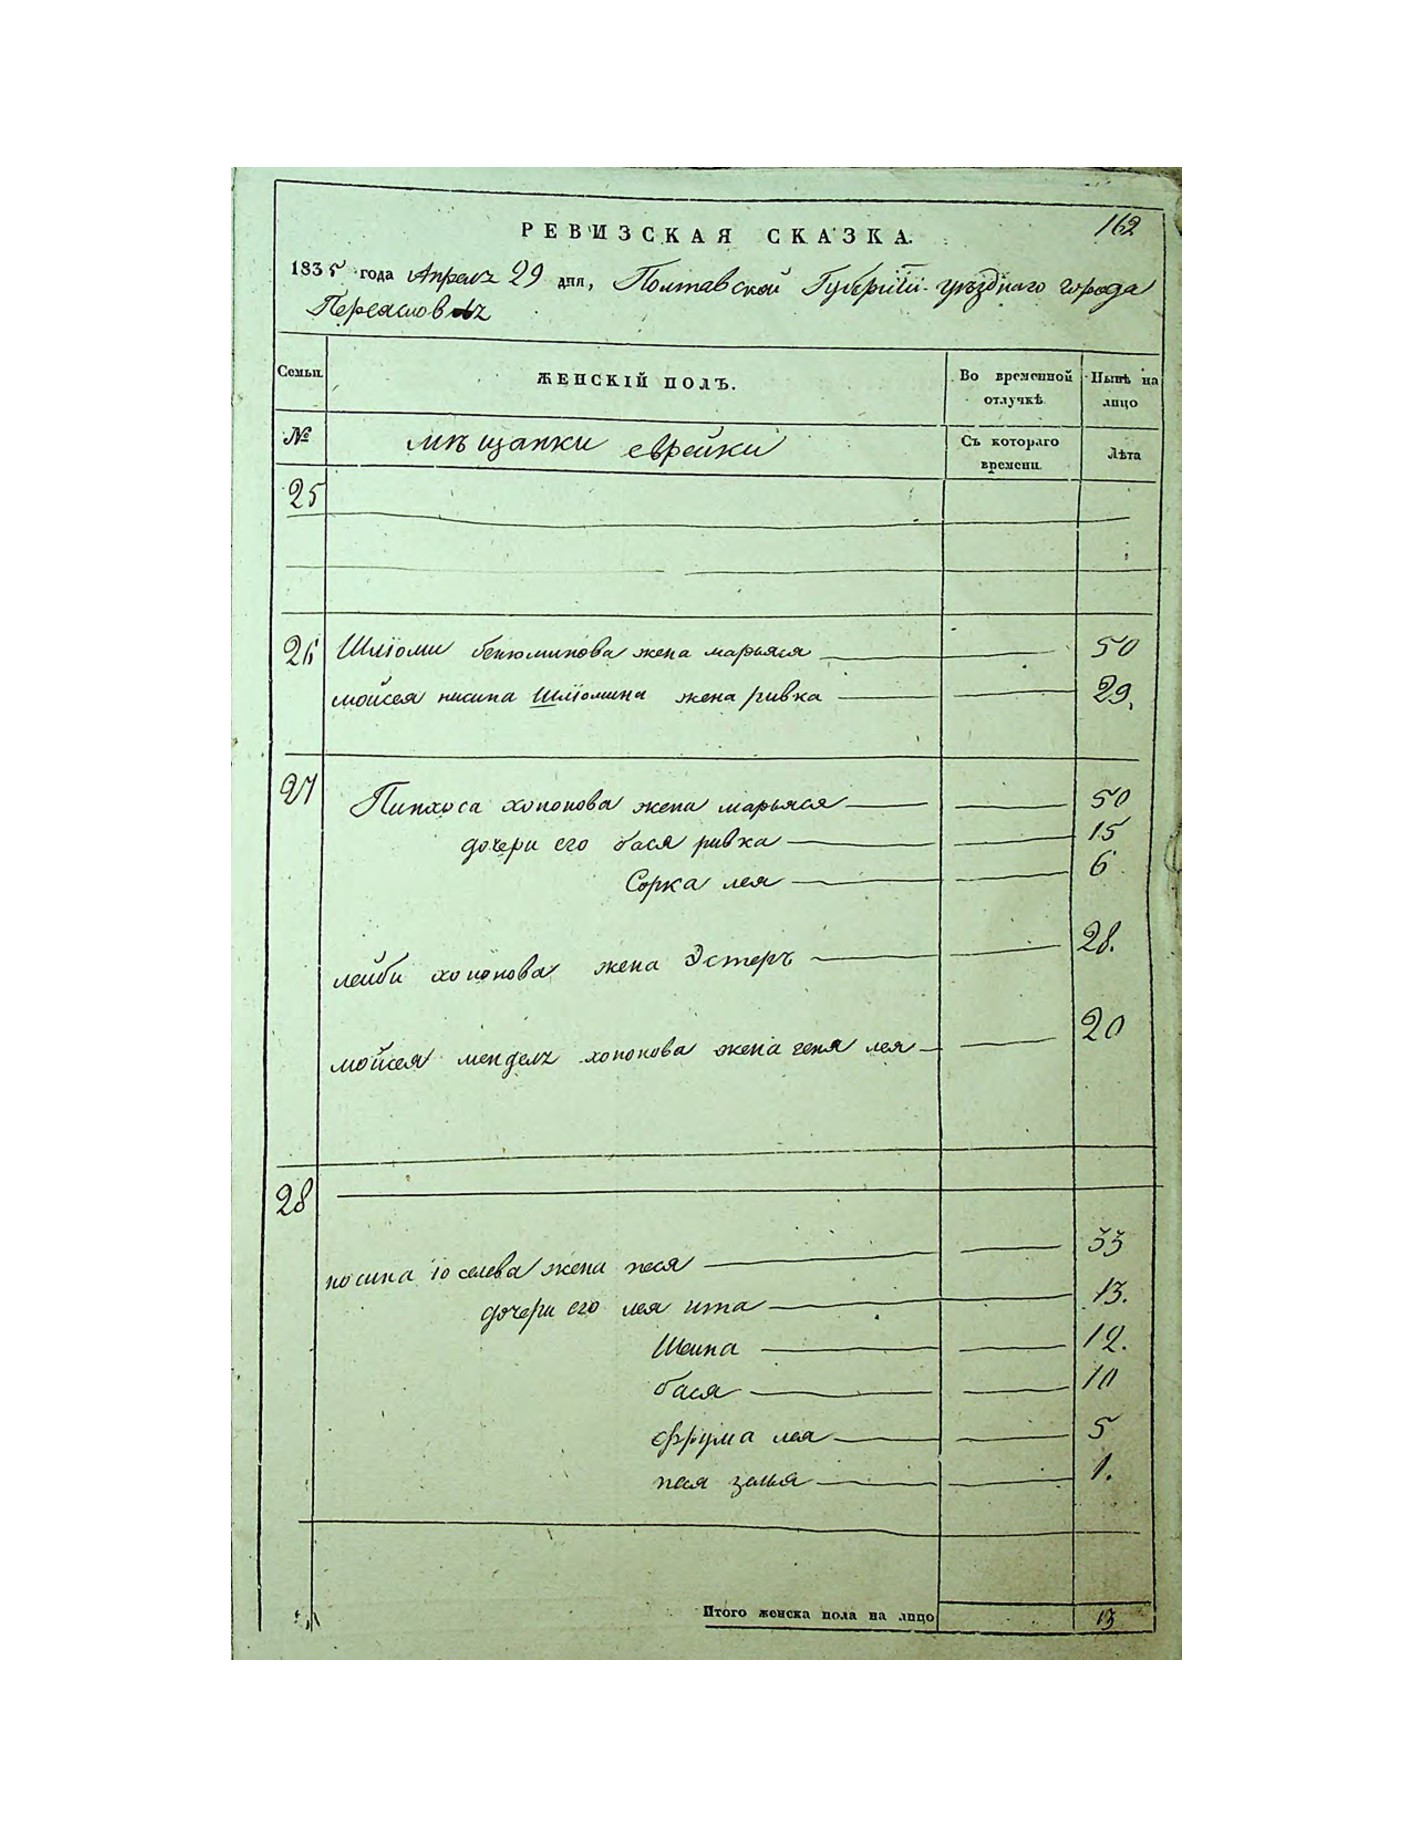 162
РЕВИЗСКАЯ СКАЗКА.
1835 года Апреля 29 дня, Полтавской Губернїи уѣзднаго города
Переяслов
Семьи. ЖЕНСКІЙ ПОЛЪ. Во временной отлучкѣ Нынѣ на лицо
№ мѣщанки еврейки Съ котораго времени. Лѣта
25
26 Шлїоми бенюминова жена марьяся 50
мойсея нисина Шлїомина жена ривка 29.
27 Пинхоса хононова жена марьяся 50
дочери его бася ривка 15
Сорка лея 6
лейби хононова жена Эстеръ 28.
мойсея мендель хононова жена геня лея 20
28
носина іоселева жена песя 33
дочери его лея ита 13.
Шеина 12.
бася 10
фрума лея 5
песя 1.
Итого женска пола на лицо 13